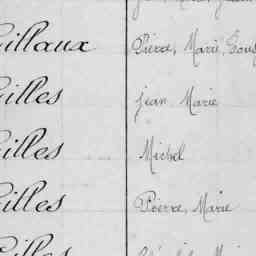 Gillaux Pierre, Marie, Louis
Gilles Jean Marie
Gilles Michel
Gilles Pierre, Marie
Gilles